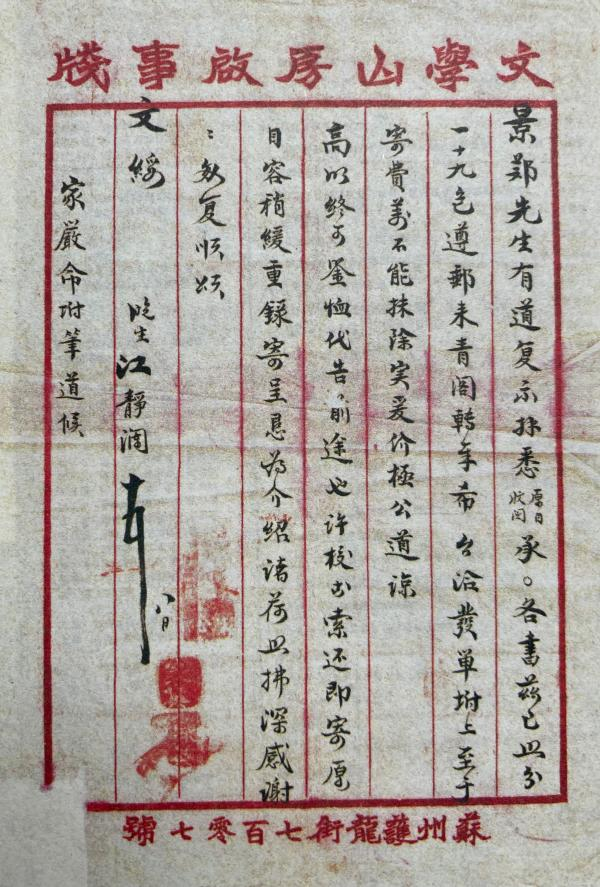 文學山房啟事牋
景鄭先生有道复示拜悉原目收閱承。各書茲已皿分
一十九包遵郵来青阁轉奉希台洽發單坿上至于
寄費萬不能抹除实爰价極公道諒
高明終可鉴恤代告前途也许校出索还即寄原
目容稍緩重錄寄呈恳為介紹諸荷皿拂深感謝
〻敬复順頌
文綏
晚生江靜瀾 八日
家嚴命坿筆道候
蘇州護龍街七百零七號